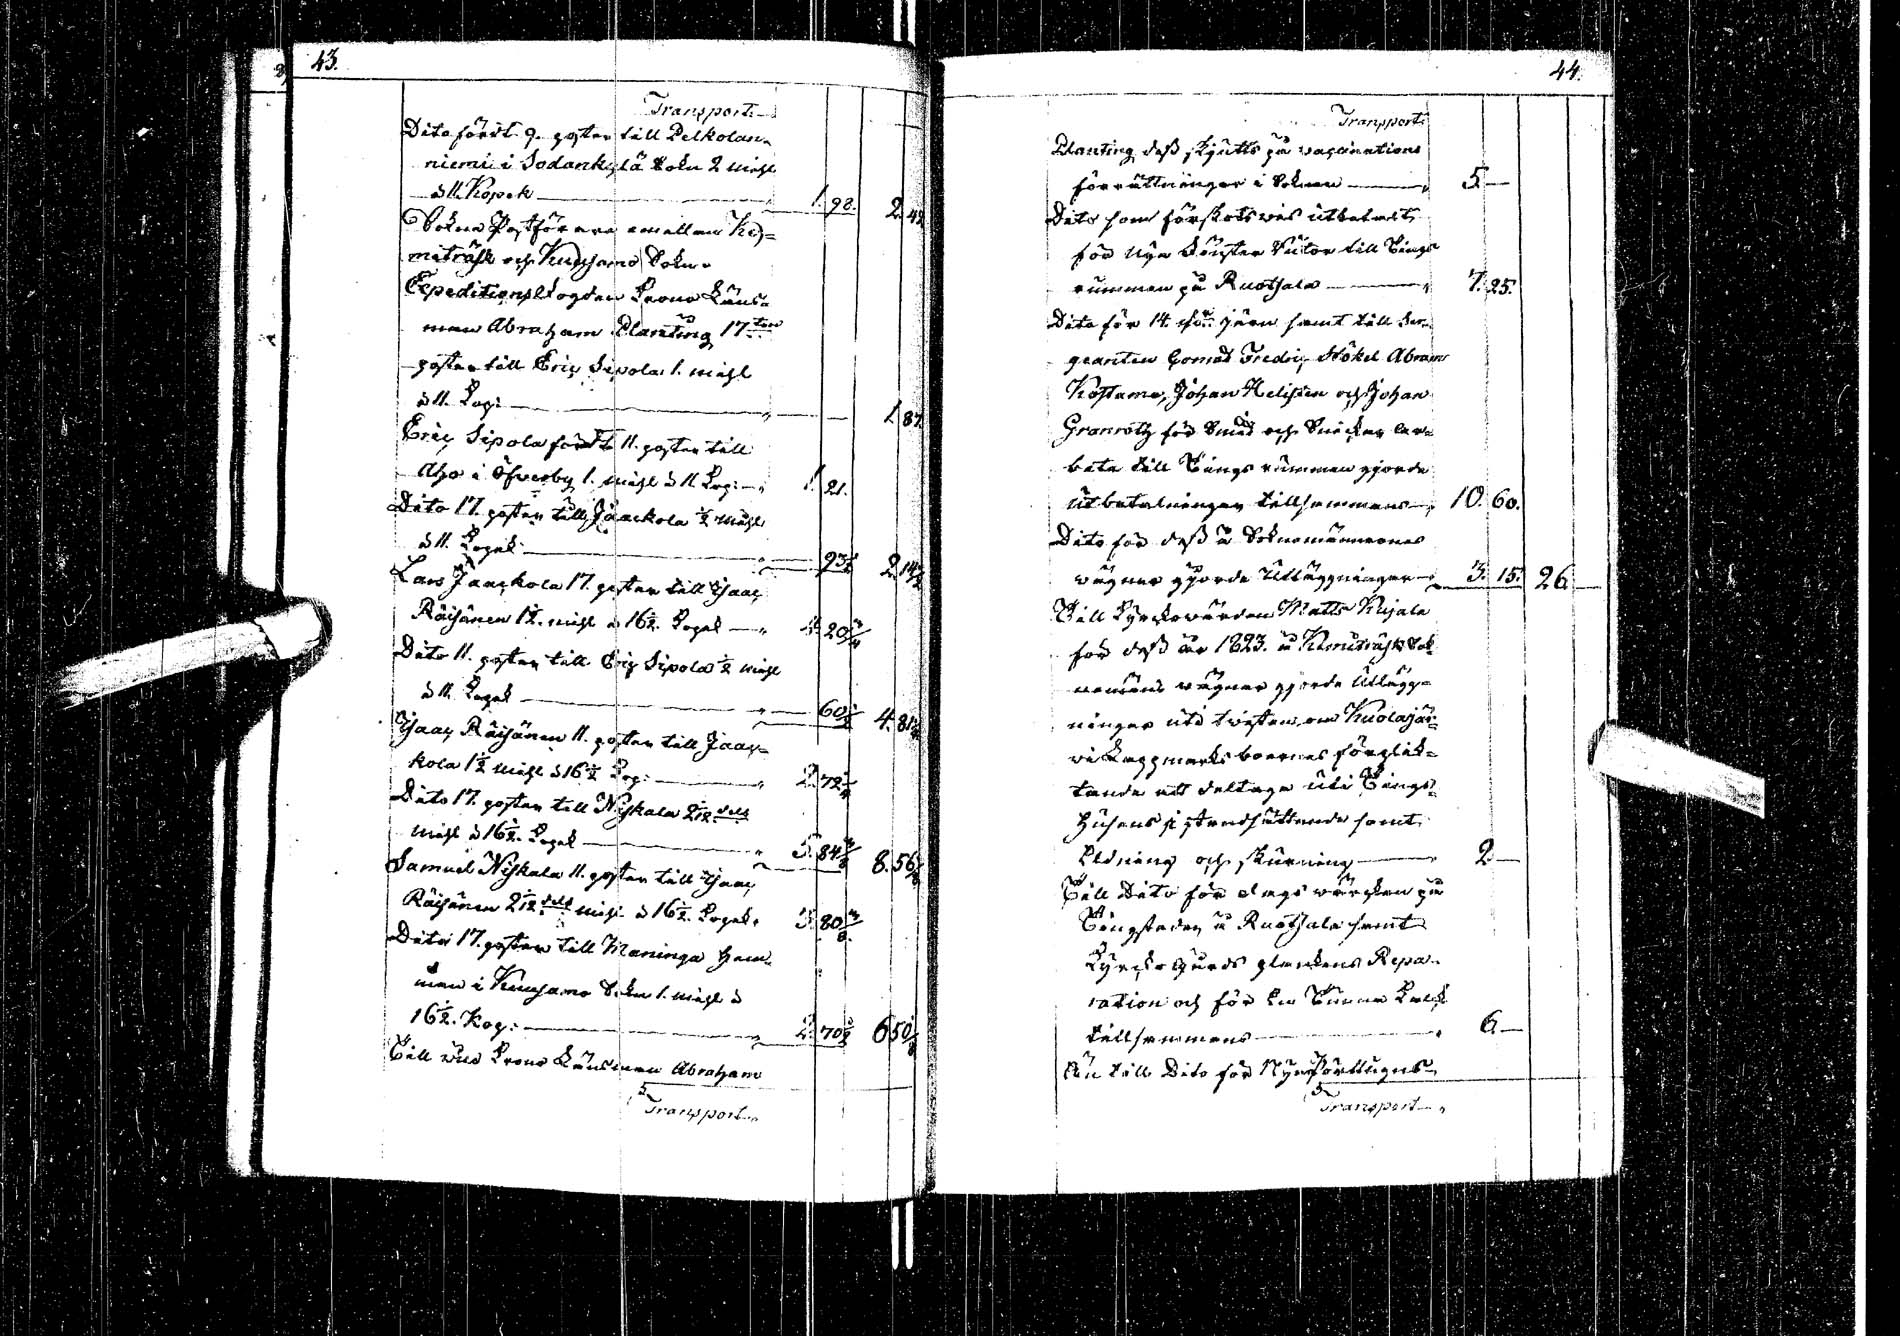 43.
Transport
Dito fördt 9. poster till Pelkolan-
niemi i Sodankylä Sokn 2 mihl
à 11. Kopek 1. 98. 2. 42
Sokne Postförare emellan Ke-
miträsk och Kuusamo Sokn
Expeditions Fogden Krono Läns-
man Abraham Planting 17 ton
poster till Eric Sipola 1. mihl
à 11. Kop: 1. 87.
Eric Sipola fördt 11. poster till
Aho i Öfverby 1. mihl à 11. Kop: 1. 21.
Dito 17. poster till Jaackola 1/2 mihl
à 11. Kopek 93 1/2 2. 14 1/2
Lars Jaackola 17. poster till Isaac
Räisänen 1 1/2. mihl à 16 1/2. Kopek 4. 20 3/4
Dito 11. poster till Eric Sipola 1/2 mihl
à 11. Kopek 60 1/2 4. 81 1/4
Isaac Räisänen 11. poster till Jaac-
kola 1 1/2 mihl à 16 1/2 Kop: 2. 72 1/4
Dito 17. poster till Niskala 2 1/12 dels
mihl à 16 1/2. Kopek 5. 84 3/8 8. 56 5/8
Samuel Niskala 11. poster till Isaac
Räisänen 2 1/12 dels mihl à 16 1/2. Kopek. 3. 80 3/8.
Dito 17. poster till Maninga hem-
man i Kuusamo Sokn 1. mihl à
16 1/2. Kop: 2. 70 1/2 6 50 7/8
Till väl. Krono Länsman Abraham
Transport
44.
Transport
Planting dess skjutts på vaccinations
förrättningar i Soknen 5. —
Dito som förskotsvis utbetalt
för nya fönster Rutor till Tings
rummen på Ruotsala 7. 25.
Dito för 14. järn samt till Ser-
geanten Conrad Fredric Stökel Abram
Kostamo, Johan Helisten och Johan
Granroth för Smed och Snickar ar-
bete till Tings rummen gjorde
utbetalningar tillsammans 10. 60.
Dito för dess å Soknemännernes
vägnar gjorde Utläggningar 3. 15. 26 —
Till Kyrckovärden Matts Kujala
för dess år 1823. å Kemiträsk Sok-
nemäns vägnar gjorde Utlägg-
ningar uti tvisten om Kuolajär-
vi Lappmarksboernes förplik-
tande att deltaga uti Tings-
Husens i ståndsättande samt
Eldning och skurning 2 —
Till Dito för dags värcken på
Tingstaden å Ruotsala samt
Kyrckogårds plankens Repa-
ration och för En Tunna Kalck
tillsammans 6. —
Än till Dito för Nyss förttligas
Transport